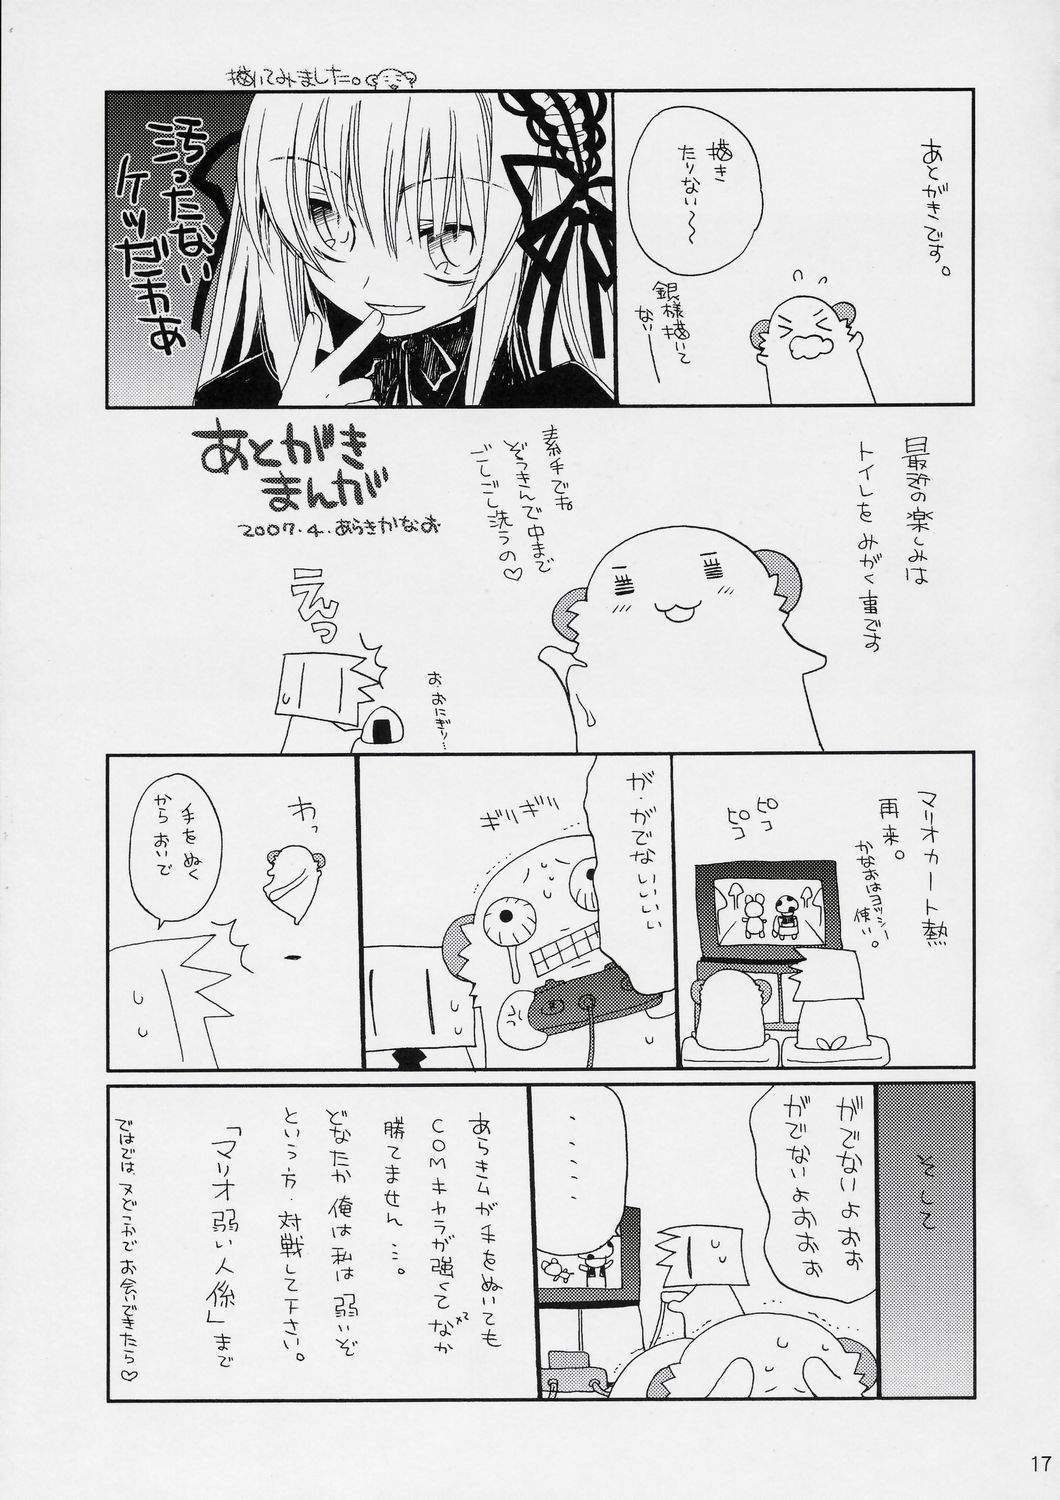 あとがきです。
描き
たりない〜
銀様描いて
ないーー
描いてみました。
汚ったない
ケツがホカぁ
あとがき
まんが
2007.4.あらきかなお
最近の楽しみは
トイレをみがく事です
素手でね
ぞうきんで中まで
ごしごし洗うの♡
えんっ
お・おにぎり…
マリオカート熱
再来。
かなおはヨッシー
使い。
ピコ
ピコ
が・がでないいいい
ギリギリ
わっ
手をぬく
から おいで
そして
がでないよおぉ
がでないよおぉぉ
・・・・・・
あらきムが手をぬいても
COMキャラが強くてなか×2
勝てません…。
どなたか俺は私は弱いぞ
という方・対戦して下さい。
「マリオ弱い人係」まで
ではでは、又どこかでお会いできたら♡
17